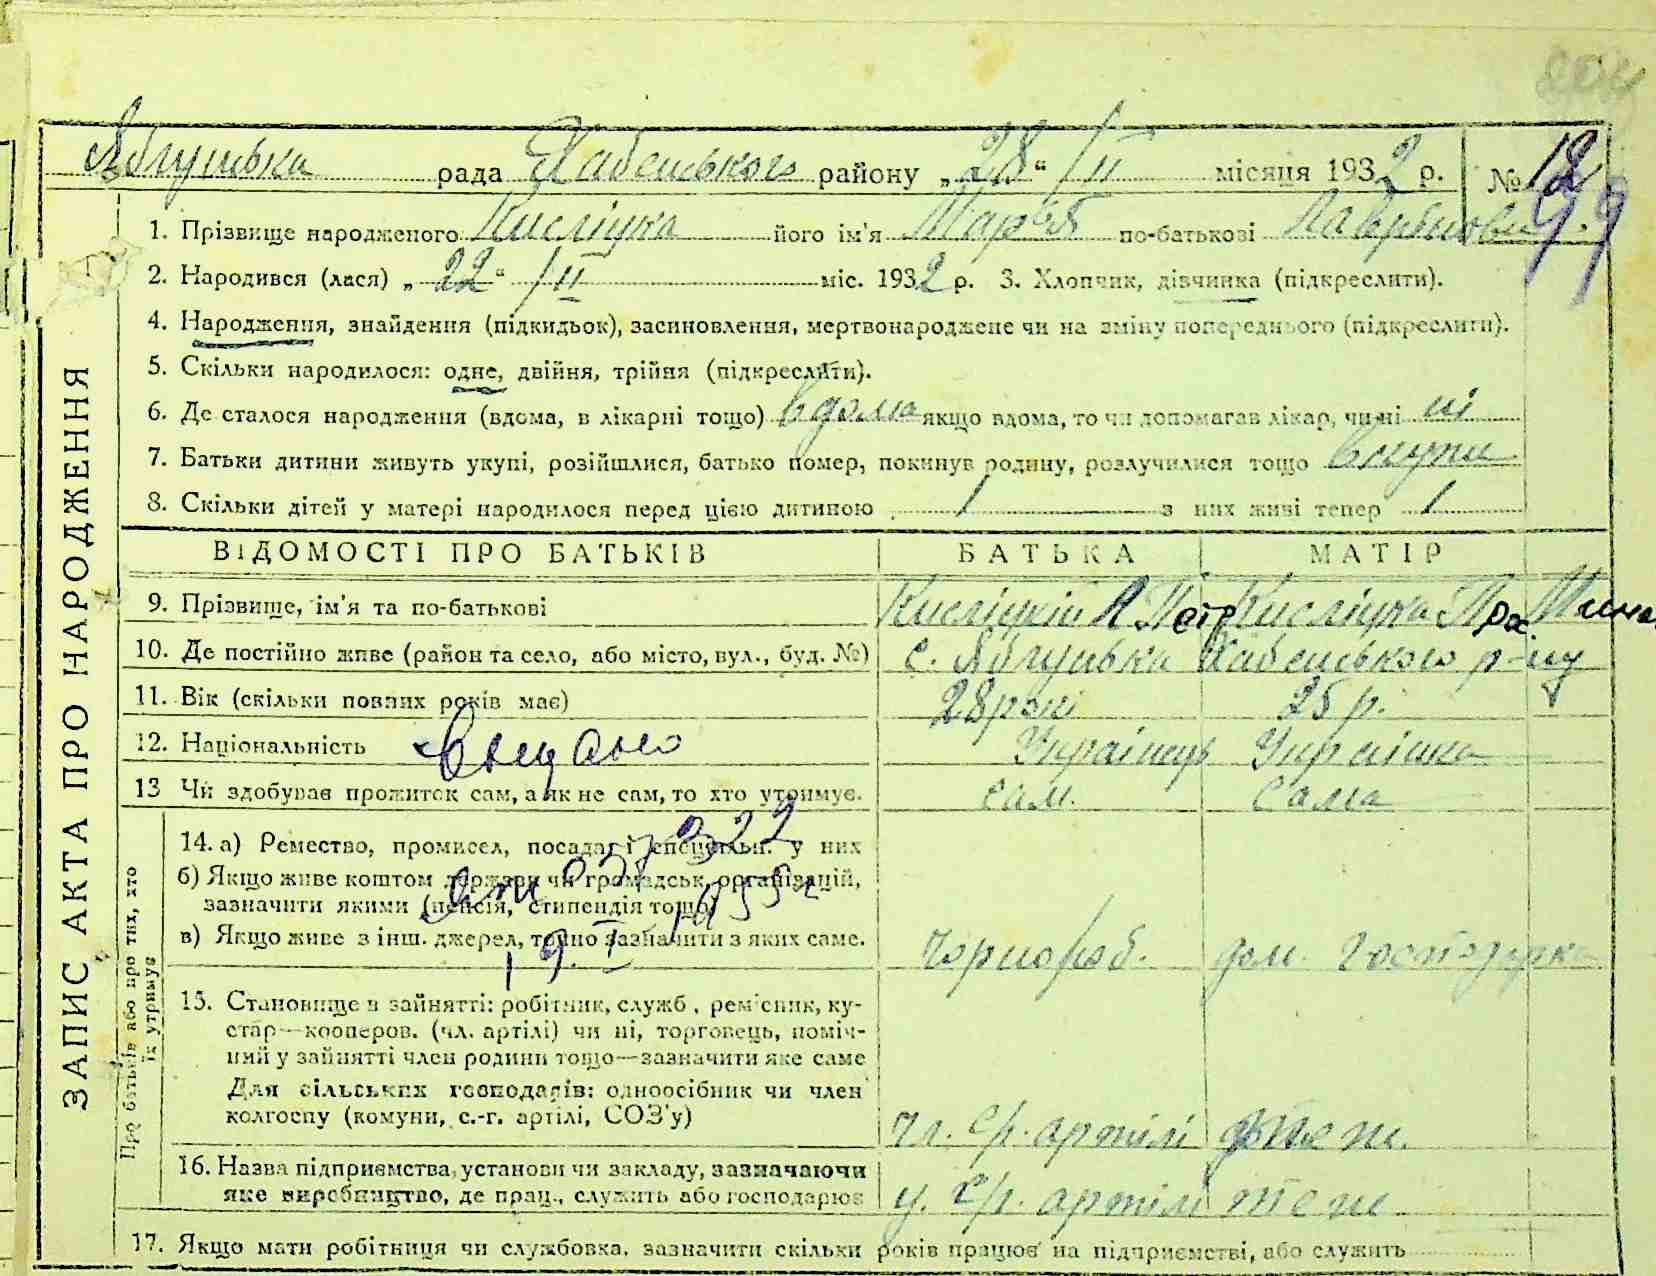 Яблунська рада Хабенського району „28“ /II місяця 1932 р. № 12
1. Прізвище народженого Кисліцка його ім'я Марія по-батькові
99
2. Народився (лася) „22“ /II міс. 1932 р. 3. Хлопчик, дівчинка (підкреслити).
4. Народження, знайдення (підкидьок), засиновлення, мертвонароджене чи на зміну попереднього (підкреслити).
5. Скільки народилося: одне, двійня, трійня (підкреслити).
6. Де сталося народження (вдома, в лікарні тощо) вдома якщо вдома, то чи допомагав лікар, чи ні ні
7. Батьки дитини живуть укупі, розійшлися, батько помер, покинув родину, розлучилися тощо вкупи
8. Скільки дітей у матері народилося перед цією дитиною 1 з них живі тепер 1
ВІДОМОСТІ ПРО БАТЬКІВ БАТЬКА МАТІР
9. Прізвище, ім'я та по-батькові Кисліцкій Л Петр Кисліцка
10. Де постійно живе (район та село, або місто, вул., буд. №) с. Яблунька Хабенського р-ну
11. Вік (скільки повних років має) 28 рокі 25 р.
12. Національність Українець Українка
выдано
13 Чи здобував прожиток сам, а як не сам, то хто утримує. сам. сама
14. а) Ремество, промисел, посада і спеціальн. у них
б) Якщо живе коштом держави чи громадськ. організацій,
зазначити якими (пенсія, стипендія тощо)
в) Якщо живе з інш. джерел, точно зазначити з яких саме. чорнороб. дом. господарка
19. I 1955г
15. Становище в зайнятті: робітник, служб., ремісник, ку-
стар—кооперов. (чл. артілі) чи ні, торговець, поміч-
ний у зайнятті член родини тощо—зазначити яке саме
Для сільських господарів: одноосібник чи член
колгоспу (комуни, с.-г. артілі, СОЗ'у) чл. с/г. артілі теж.
16. Назва підприємства, установи чи закладу, зазначаючи
яке виробництво, де прац., служить або господарює у. с/г. артілі теж
17. Якщо мати робітниця чи службовка, зазначити скільки років працює на підприємстві, або служить
ЗАПИС АКТА ПРО НАРОДЖЕННЯ
Про батьків або про тих, хто
їх утримує